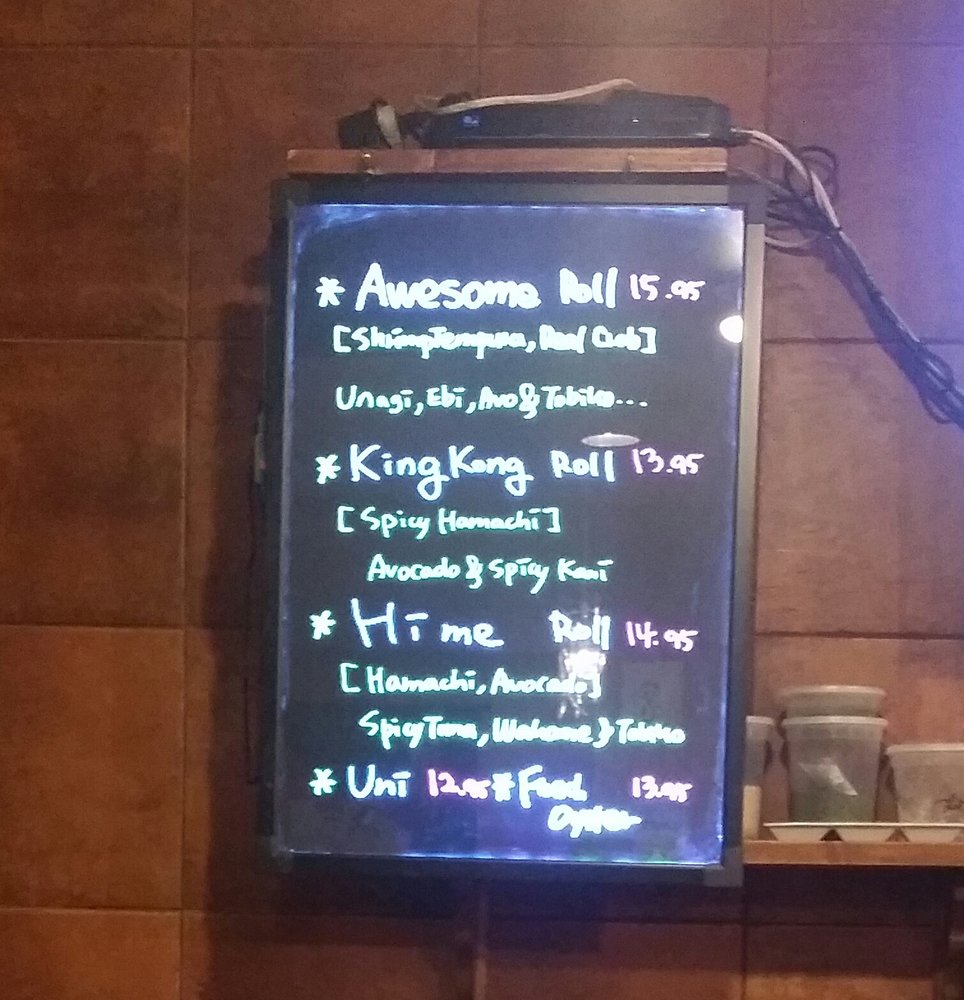 * Awesome Roll 15.95
[Shrimp Tempura, Real Crab]
Unagi, Ebi, Avo & Tobiko...
* King Kong Roll 13.95
[Spicy Hamachi]
Avocado & Spicy Kani
* Hime Roll 14.95
[Hamachi, Avocado]
Spicy Tuna, Wakame & Tobiko
* Uni 12.95 * Fried 13.95
Oyster